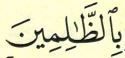 بِٱلظَّٰلِمِينَ